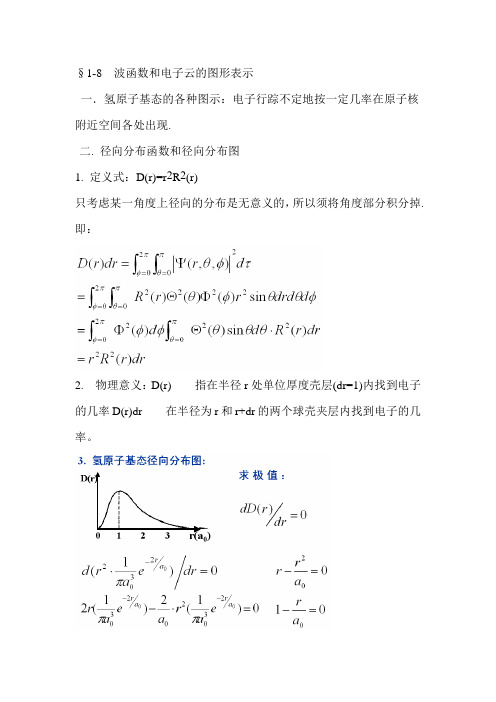 §1-8 波函数和电子云的图形表示
一．氢原子基态的各种图示：电子行踪不定地按一定几率在原子核
附近空间各处出现.
二. 径向分布函数和径向分布图
1. 定义式：D(r)=r²R²(r)
只考虑某一角度上径向的分布是无意义的，所以须将角度部分积分掉.
即：
D(r)dr = ∫_{φ=0}^{2π} ∫_{θ=0}^{π} |Ψ(r,θ,ϕ)|² dτ
= ∫_{φ=0}^{2π} ∫_{θ=0}^{π} R²(r)Θ²(θ)Φ²(ϕ)r² sinθdrdθdϕ
= ∫_{φ=0}^{2π} Φ²(ϕ)dϕ ∫_{θ=0}^{π} Θ²(θ)sinθdθ·R²(r)dr
= r²R²(r)dr
2. 物理意义：D(r) 指在半径 r 处单位厚度壳层(dr=1)内找到电子
的几率 D(r)dr 在半径为 r 和 r+dr 的两个球壳夹层内找到电子的几
率。
3. 氢原子基态径向分布图：
D(r)
0 1 2 3 r(a₀)
求极值：
dD(r)/dr = 0
d(r²·1/(πa₀³) e^{-2r/a₀})/dr = 0
r - r²/a₀ = 0
2r(1/(πa₀³) e^{-2r/a₀}) - 2/a₀·r²(1/(πa₀³) e^{-2r/a₀}) = 0
1 - r/a₀ = 0